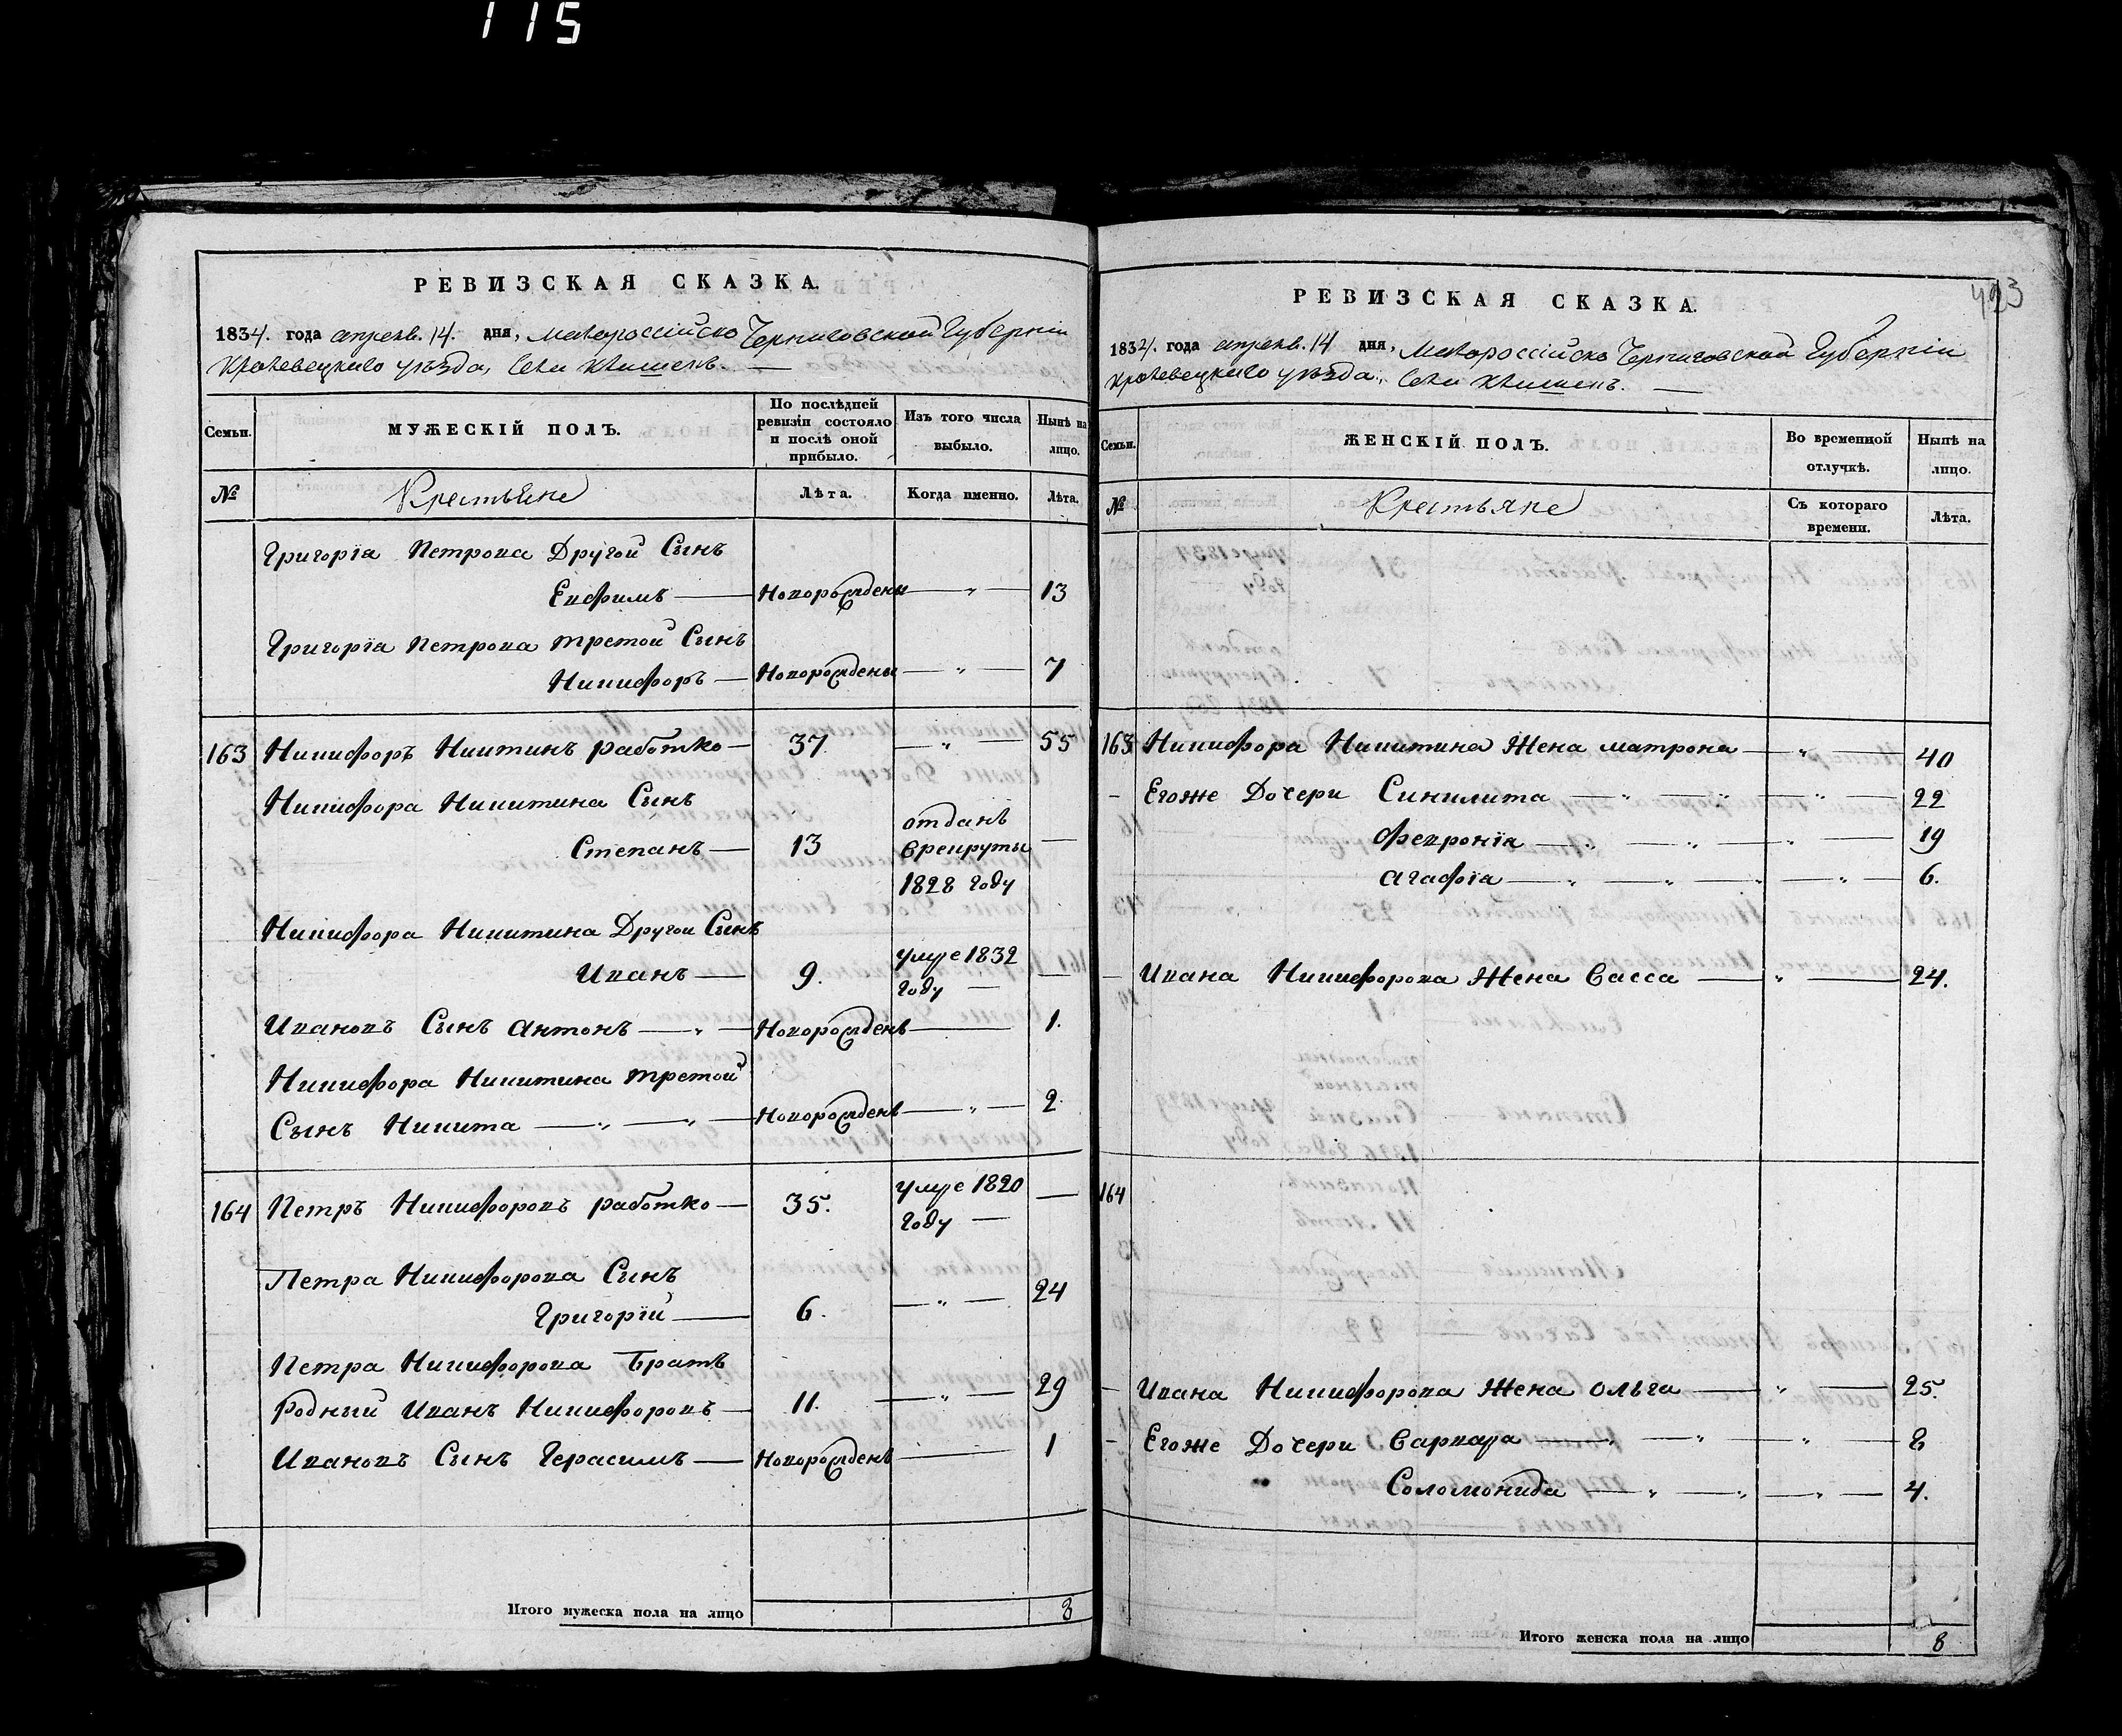 115
РЕВИЗСКАЯ СКАЗКА.
1834. года апреля. 14. дня, Малороссійско Черниговской Губерніи
Кролевецкаго уѣзда, Села Клишекъ. —
Семьи. МУЖЕСКІЙ ПОЛЪ. По послѣдней ревизіи состояло и послѣ оной прибыло. Изъ того числа выбыло. Нынѣ на лицо.
№ Крестьяне Лѣта. Когда именно. Лѣта.
Григорїа Петрова Другой Сынъ
Евфимъ — Новорожденъ — „ — 13
Григорїа Петрова третой Сынъ
Никифоръ — Новорожденъ — „ — 7
163 Никифоръ Никитинъ работко — 37 — „ — 55
Никифора Никитина Сынъ
Степанъ — 13 отданъ врекруты 1828 году —
Никифора Никитина Другои Сынъ
Иванъ — 9. умре 1832 году — —
Ивановъ Сынъ Антонъ — „ — Новорожденъ — 1.
Никифора Никитина третой
Сынъ Никита — „ — „ — Новорожденъ — „ — 2
164 Петръ Никифоровъ работко — 35. умре 1820 году — —
Петра Никифорова Сынъ
Григорїй — 6. — „ — 24
Петра Никифорова Братъ
Родный Иванъ Никифоровъ — 11. — „ — 29
Ивановъ Сынъ Герасимъ — Новорожденъ — 1
Итого мужеска пола на лицо 8
423
РЕВИЗСКАЯ СКАЗКА.
1834. года апреля. 14 дня, Малороссійско Черниговской Губерніи
Кролевецкаго уѣзда, Села Клишекъ. —
Семьи. ЖЕНСКІЙ ПОЛЪ. Во временной отлучкѣ. Нынѣ на лицо.
№ Крестьяне Съ котораго времени. Лѣта.
163 Никифора Никитина Жена матрона — „ — 40
— Егоже Дочери Синклита — „ — „ — „ — 22
Февронїа — „ — „ — „ — 19
Агафїа — „ — „ — „ — „ — 6.
— Ивана Никифорова Жена Васса — „ — 24.
164
— Ивана Никифорова Жена Ольга — „ — 25.
— Егоже Дочери Варвара — „ — „ — „ — 8
Соломонида — „ — „ — „ — 4.
Итого женска пола на лицо 8